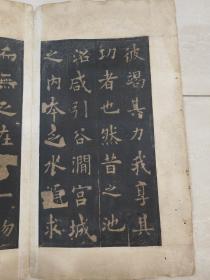 彼竭其力我享其
功者也然昔之池
沼咸引谷澗宮城
之内本乏水源求
而無之在
一物